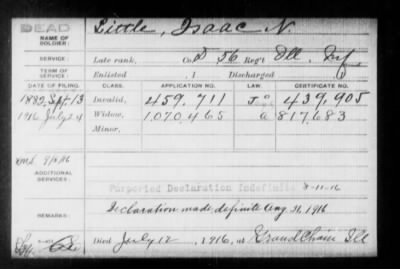 DEAD
NAME OF SOLDIER: Little, Isaac N.
SERVICE: Late rank, Co. D 56 Reg't Ill. Inf
TERM OF SERVICE: Enlisted , 1 Discharged
DATE OF FILING. CLASS. APPLICATION NO. LAW. CERTIFICATE NO.
1882, Sept. 13 Invalid, 459.711 439,905
1916 July 24 Widow, 1.070.465 a 817,683
Minor,
ADDITIONAL SERVICES:
Purported Declaration Indefinite 8-11-16
REMARKS: Declaration made definite Aug. 31, 1916
Died July 12, 1916, at Grand Chain Ill